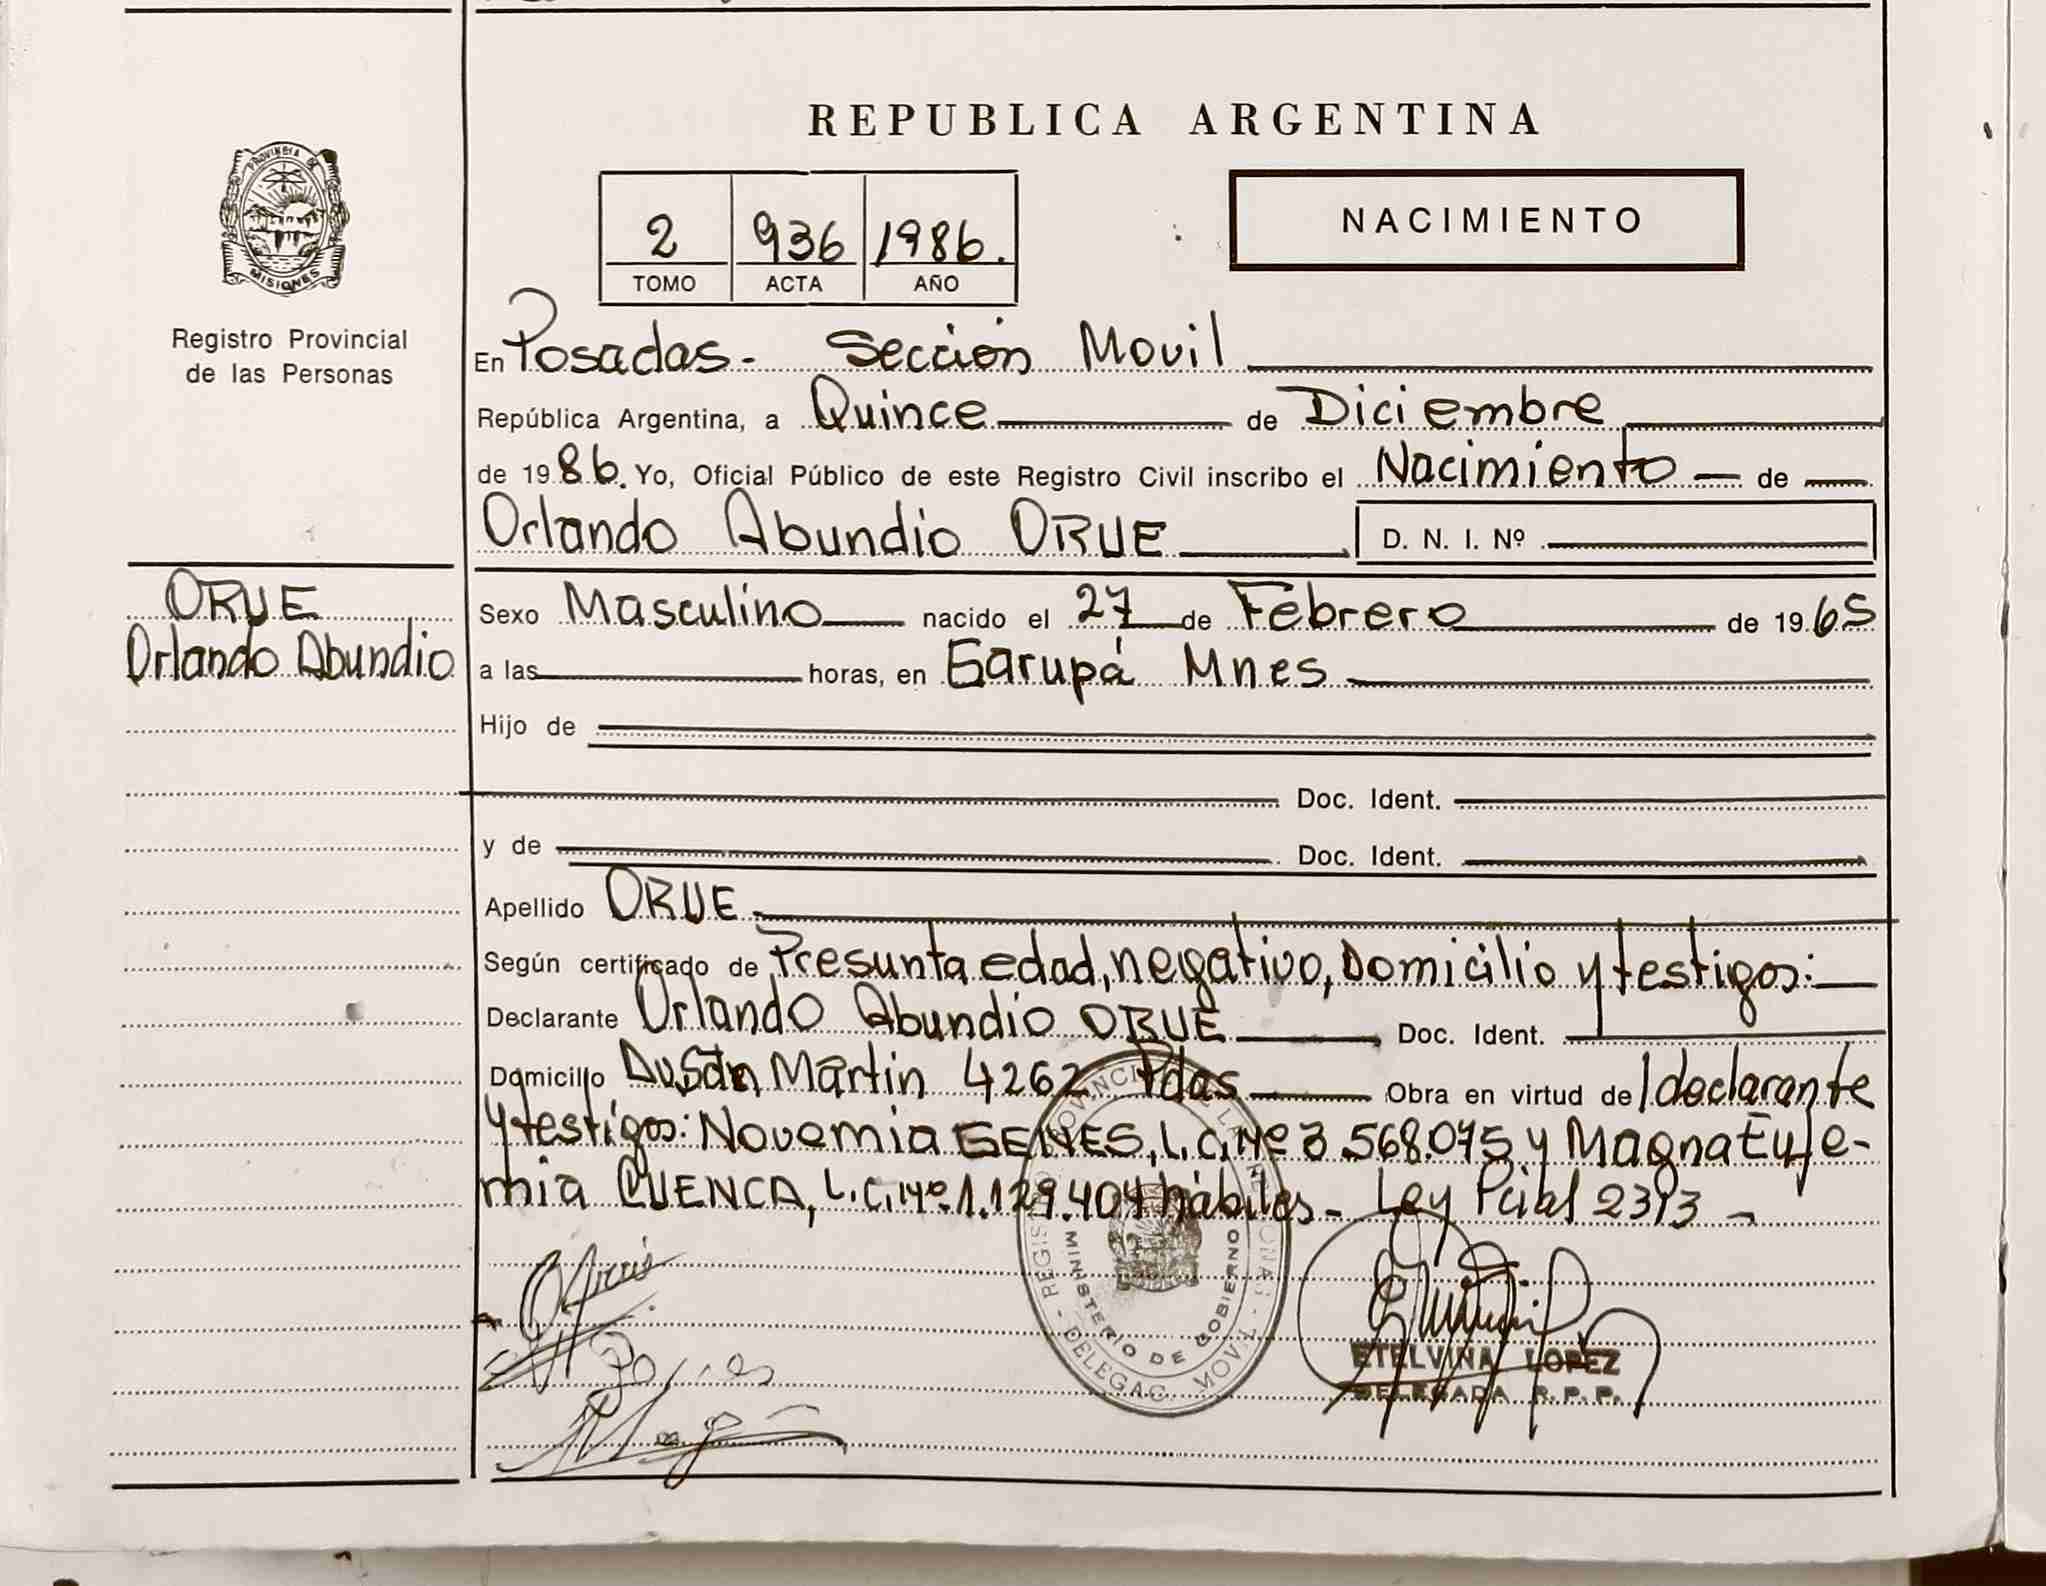 REPUBLICA ARGENTINA
PROVINCIA DE
MISIONES
Registro Provincial
de las Personas
2 936 1986.
TOMO ACTA AÑO
NACIMIENTO
En Posadas - Sección Movil
República Argentina, a Quince de Diciembre
de 1986. Yo, Oficial Público de este Registro Civil inscribo el Nacimiento de
Orlando Abundio ORUE D. N. I. Nº
ORUE
Orlando Abundio
Sexo Masculino nacido el 27 de Febrero de 1965
a las horas, en Garupá Mnes
Hijo de
Doc. Ident.
y de Doc. Ident.
Apellido ORUE
Según certificado de Presunta edad, negativo, Domicilio y testigos:
Declarante Orlando Abundio ORUE Doc. Ident.
Domicilio San Martin 4262 Pdas Obra en virtud de l declarante
y testigos: Novemia GENES, L.C. Nº 3.568.075 y Magna Eufe-
mia CUENCA, L.C. Nº 1.129.404 hábiles - Ley Pcial 2393 -
MINISTERIO DE GOBIERNO
ETELVINA LOPEZ
DELEGADA R. P. P.